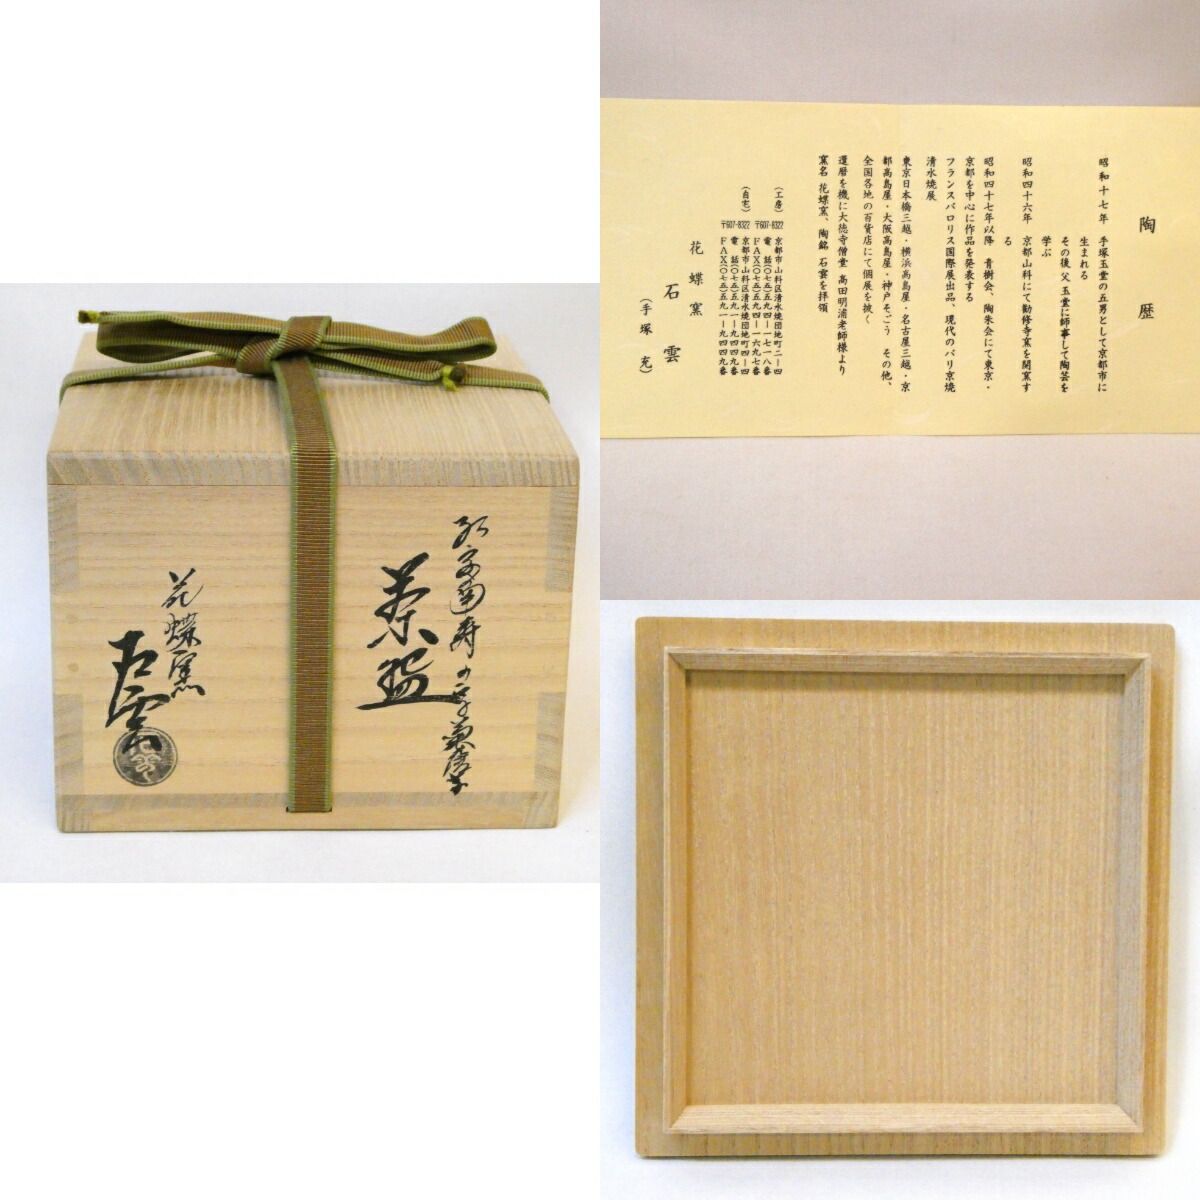 茶盌
花蝶窯
石雲
陶歴
昭和十七年 手塚玉堂の五男として京都市に
生まれる
その後 父 玉堂に師事して陶芸を
学ぶ
昭和四十六年 京都山科にて勧修寺窯を開窯す
る
昭和四十七年以降 青樹会、陶朱会にて東京・
京都を中心に作品を発表する
フランスバロリス国際展出品、現代のパリ京焼
清水焼展
東京日本橋三越・横浜高島屋・名古屋三越・京
都高島屋・大阪高島屋・神戸そごう その他、
全国各地の百貨店にて個展を披く
還暦を機に大徳寺僧堂 高田明浦老師様より
窯名 花蝶窯、陶銘 石雲を拝領
(工房) 〒607-8322 京都市山科区清水焼団地町二-四
電 話(〇七五)五九四-一七一八番
FAX(〇七五)五九四-一六九七番
(自宅) 〒607-8322 京都市山科区清水焼団地町四-四
電 話(〇七五)五九一-九四四九番
FAX(〇七五)五九一-九四四九番
花蝶窯
石雲
(手塚 充)